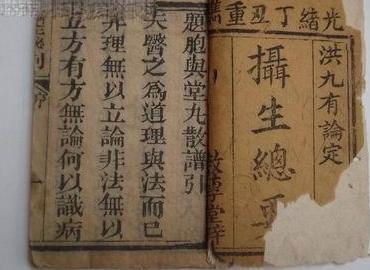 光緒丁丑重鐫
洪九有論定
攝生總
堂梓
題胞與堂丸散譜引
夫醫之爲道理與法而已
非理無以立論非法無以
立方有方無論何以識病
序